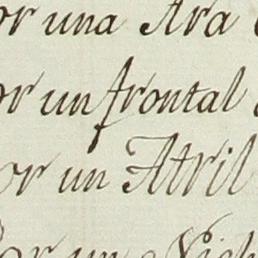 or una Ara
or un frontal
or un Atril
or un Nich